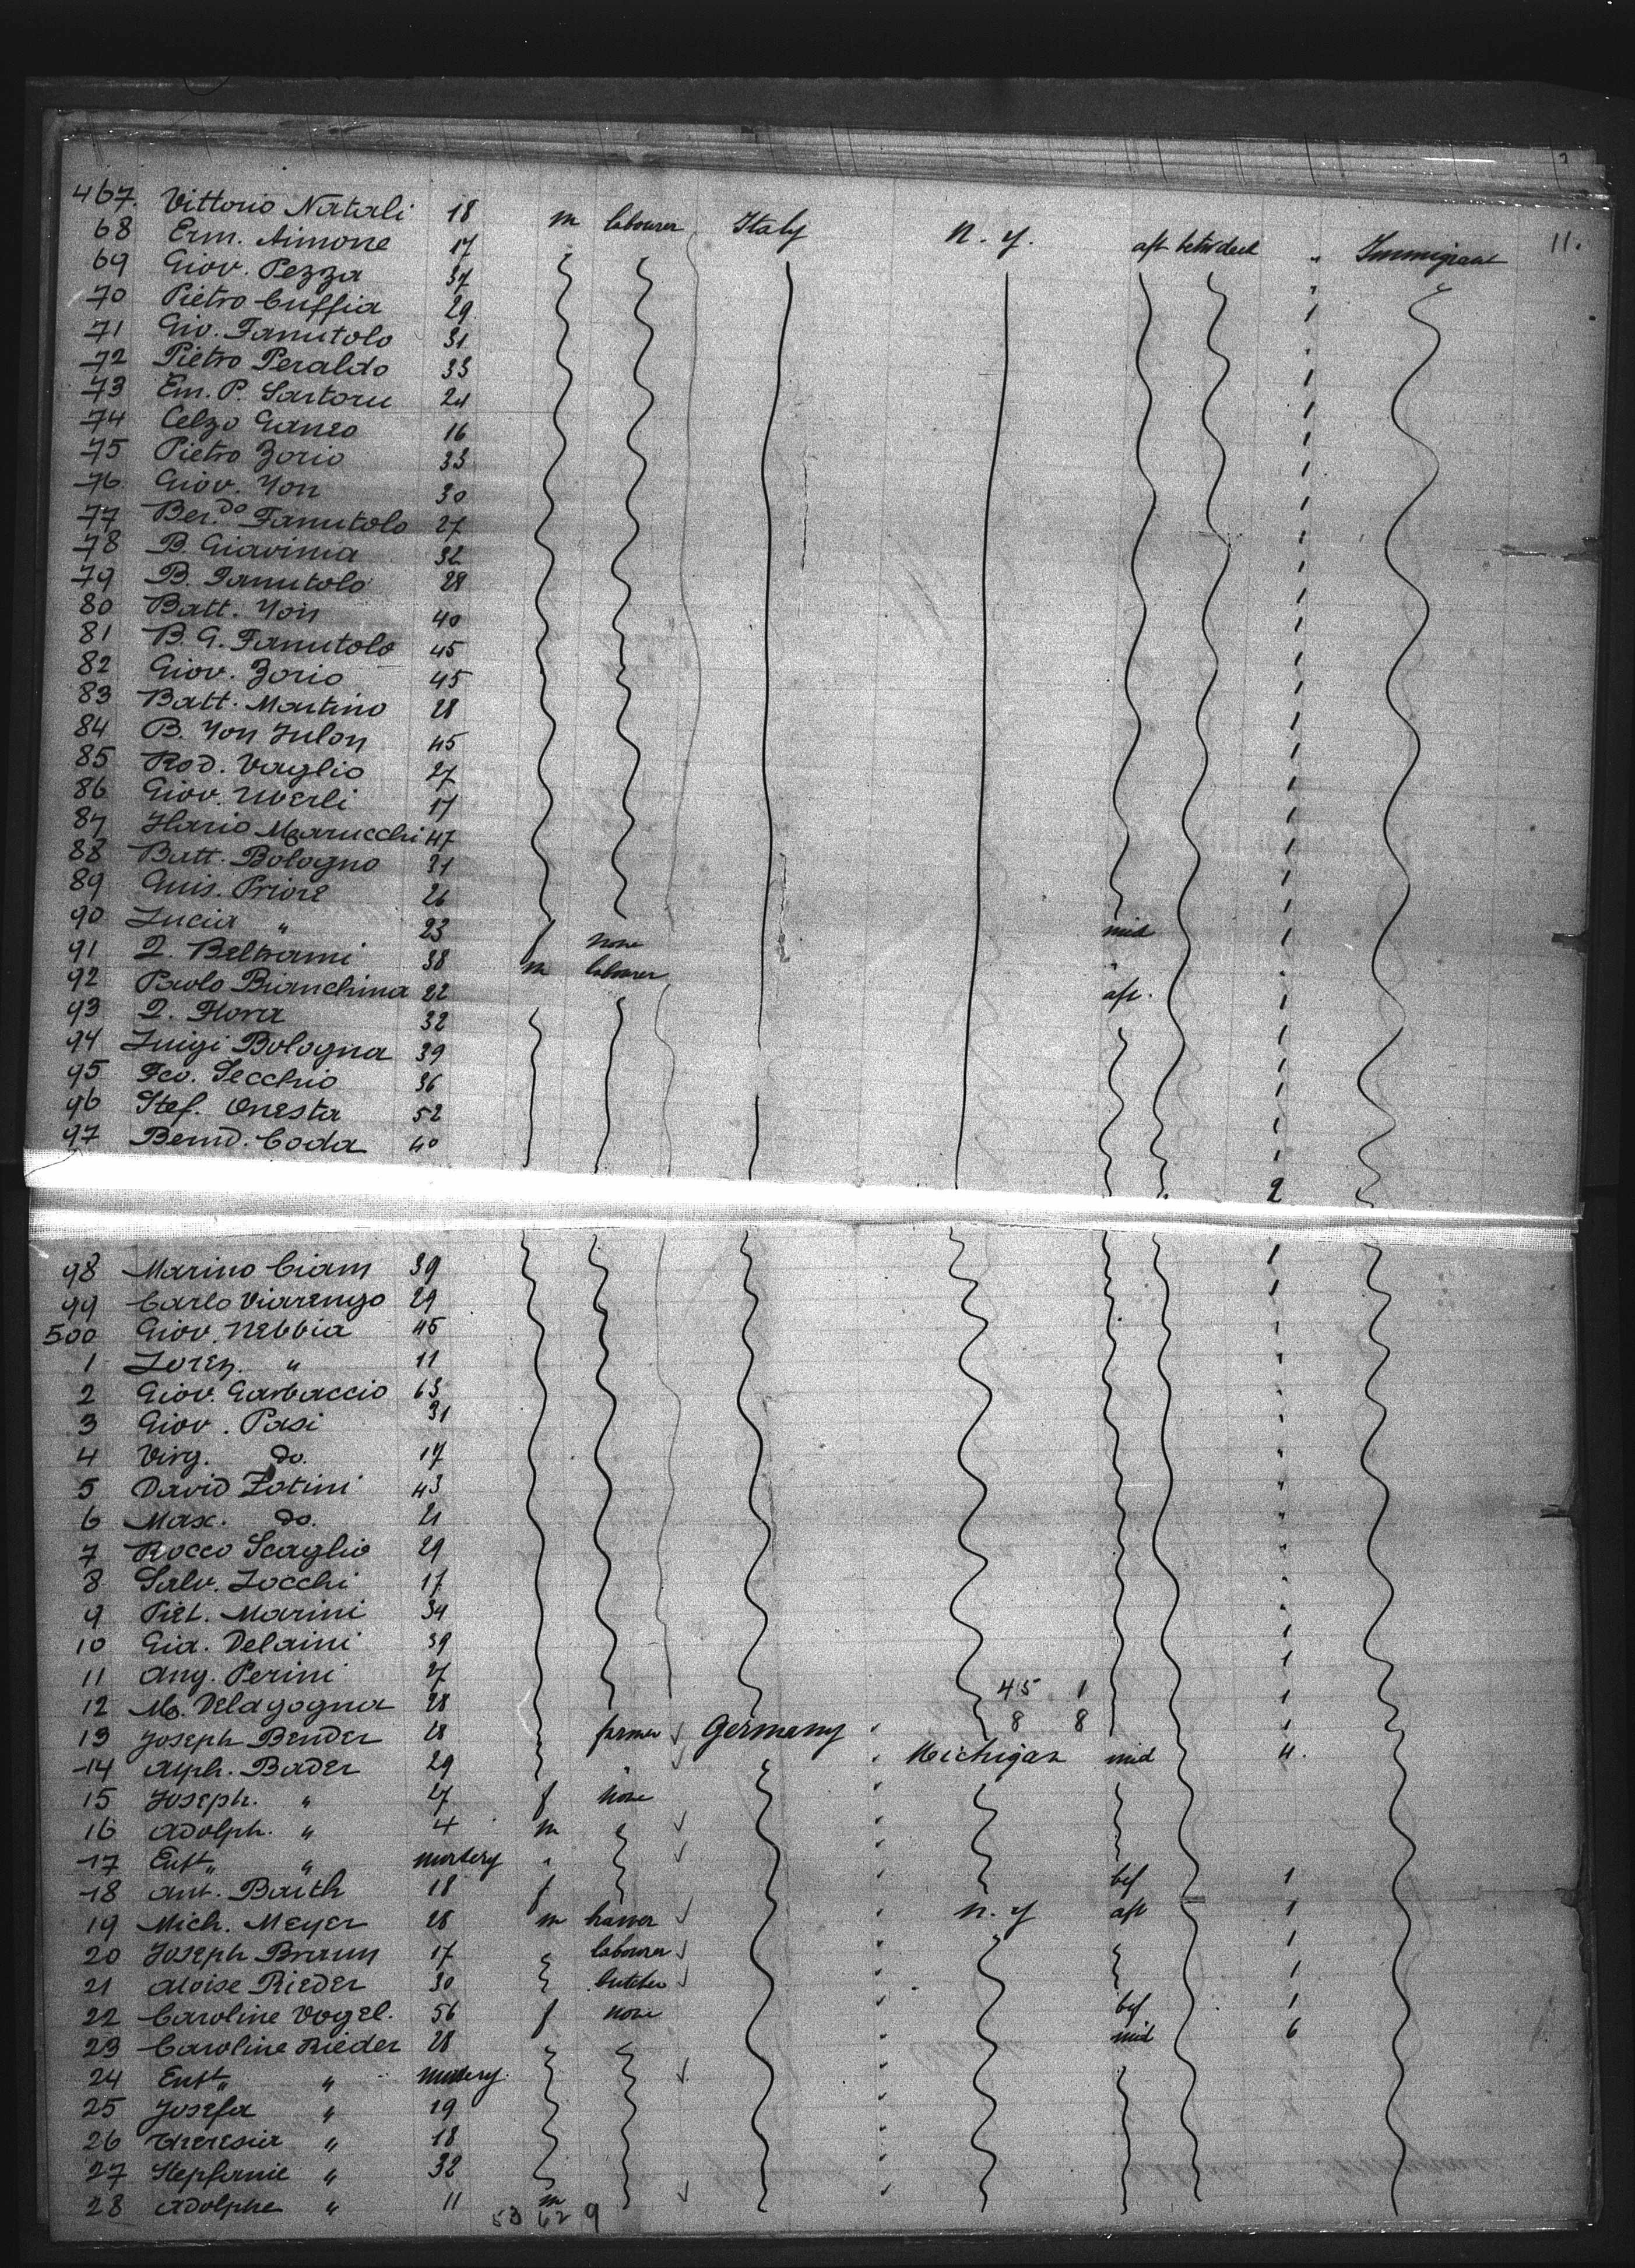 467. Vittorio Natali 18 m labourer Italy N. Y. aft betwdeck " Immigrant 11.
68 Erm. Aimone 17
69 Giov. Pezza 37
70 Pietro Cuffia 29
71 Giv. Fanutolo 31
72 Pietro Peraldo 33
73 Em. P. Sartoru 24
74 Celzo Ganeo 16
75 Pietro Zorio 33
76 Giov. Yon 30
77 Ber.do Fanutolo 27
78 B. Giavinia 32
79 B. Fanutolo 28
80 Batt. Yon 40
81 B. G. Fanutolo 45
82 Giov. Zorio 45
83 Batt. Martino 28
84 B. Yon Julon 45
85 Rod. Vaglio 27
86 Giov. Uberli 17
87 Ilario Marucchi 47
88 Batt. Bologno 31
89 Guis. Priore 26
90 Lucia " 23 f none mid 1
91 Q. Beltrami 38 m labourer "
92 Paolo Bianchina 22 aft. 1
93 Q. Flora 32
94 Luigi Bologna 39
95 Fco. Secchio 36
96 Stef. Onesta 52
97 Bernd. Coda 40
2
98 Marino Ciam 39 1
99 Carlo Viarengo 29 1
500 Giov. Nebbia 45
1 Loren. " 11
2 Giov. Garbaccio 63
3 Giov. Pasi 31
4 Virg. do. 17
5 David Zotini 43
6 Max. do. 21
7 Rocco Scaglio 29
8 Salv. Zocchi 17
9 Piet. Marini 34
10 Gia. Delaini 39 1
11 Ang. Perini 27 1
45 1
12 M. Delagogna 28 1
8 8
13 Joseph Bender 28 farmer Germany 1
14 Alph. Bader 29 " Michigan mid 4.
15 Joseph. " 27 f none
16 Adolph. " 4 m
17 Eust. " " "
18 Ant. Barth 18 f bef 1
19 Mich. Meyer 28 m N. Y aft 1
20 Joseph Braun 17 labourer 1
21 Aloise Rieder 30 butcher 1
22 Caroline Vogel. 56 f none bef 1
23 Caroline Rieder 28 mid 6
24 Eust. "
25 Josefa " 19
26 Theresia " 18
27 Stephanie " 32
28 Adolphe " 11 m
53 62 9